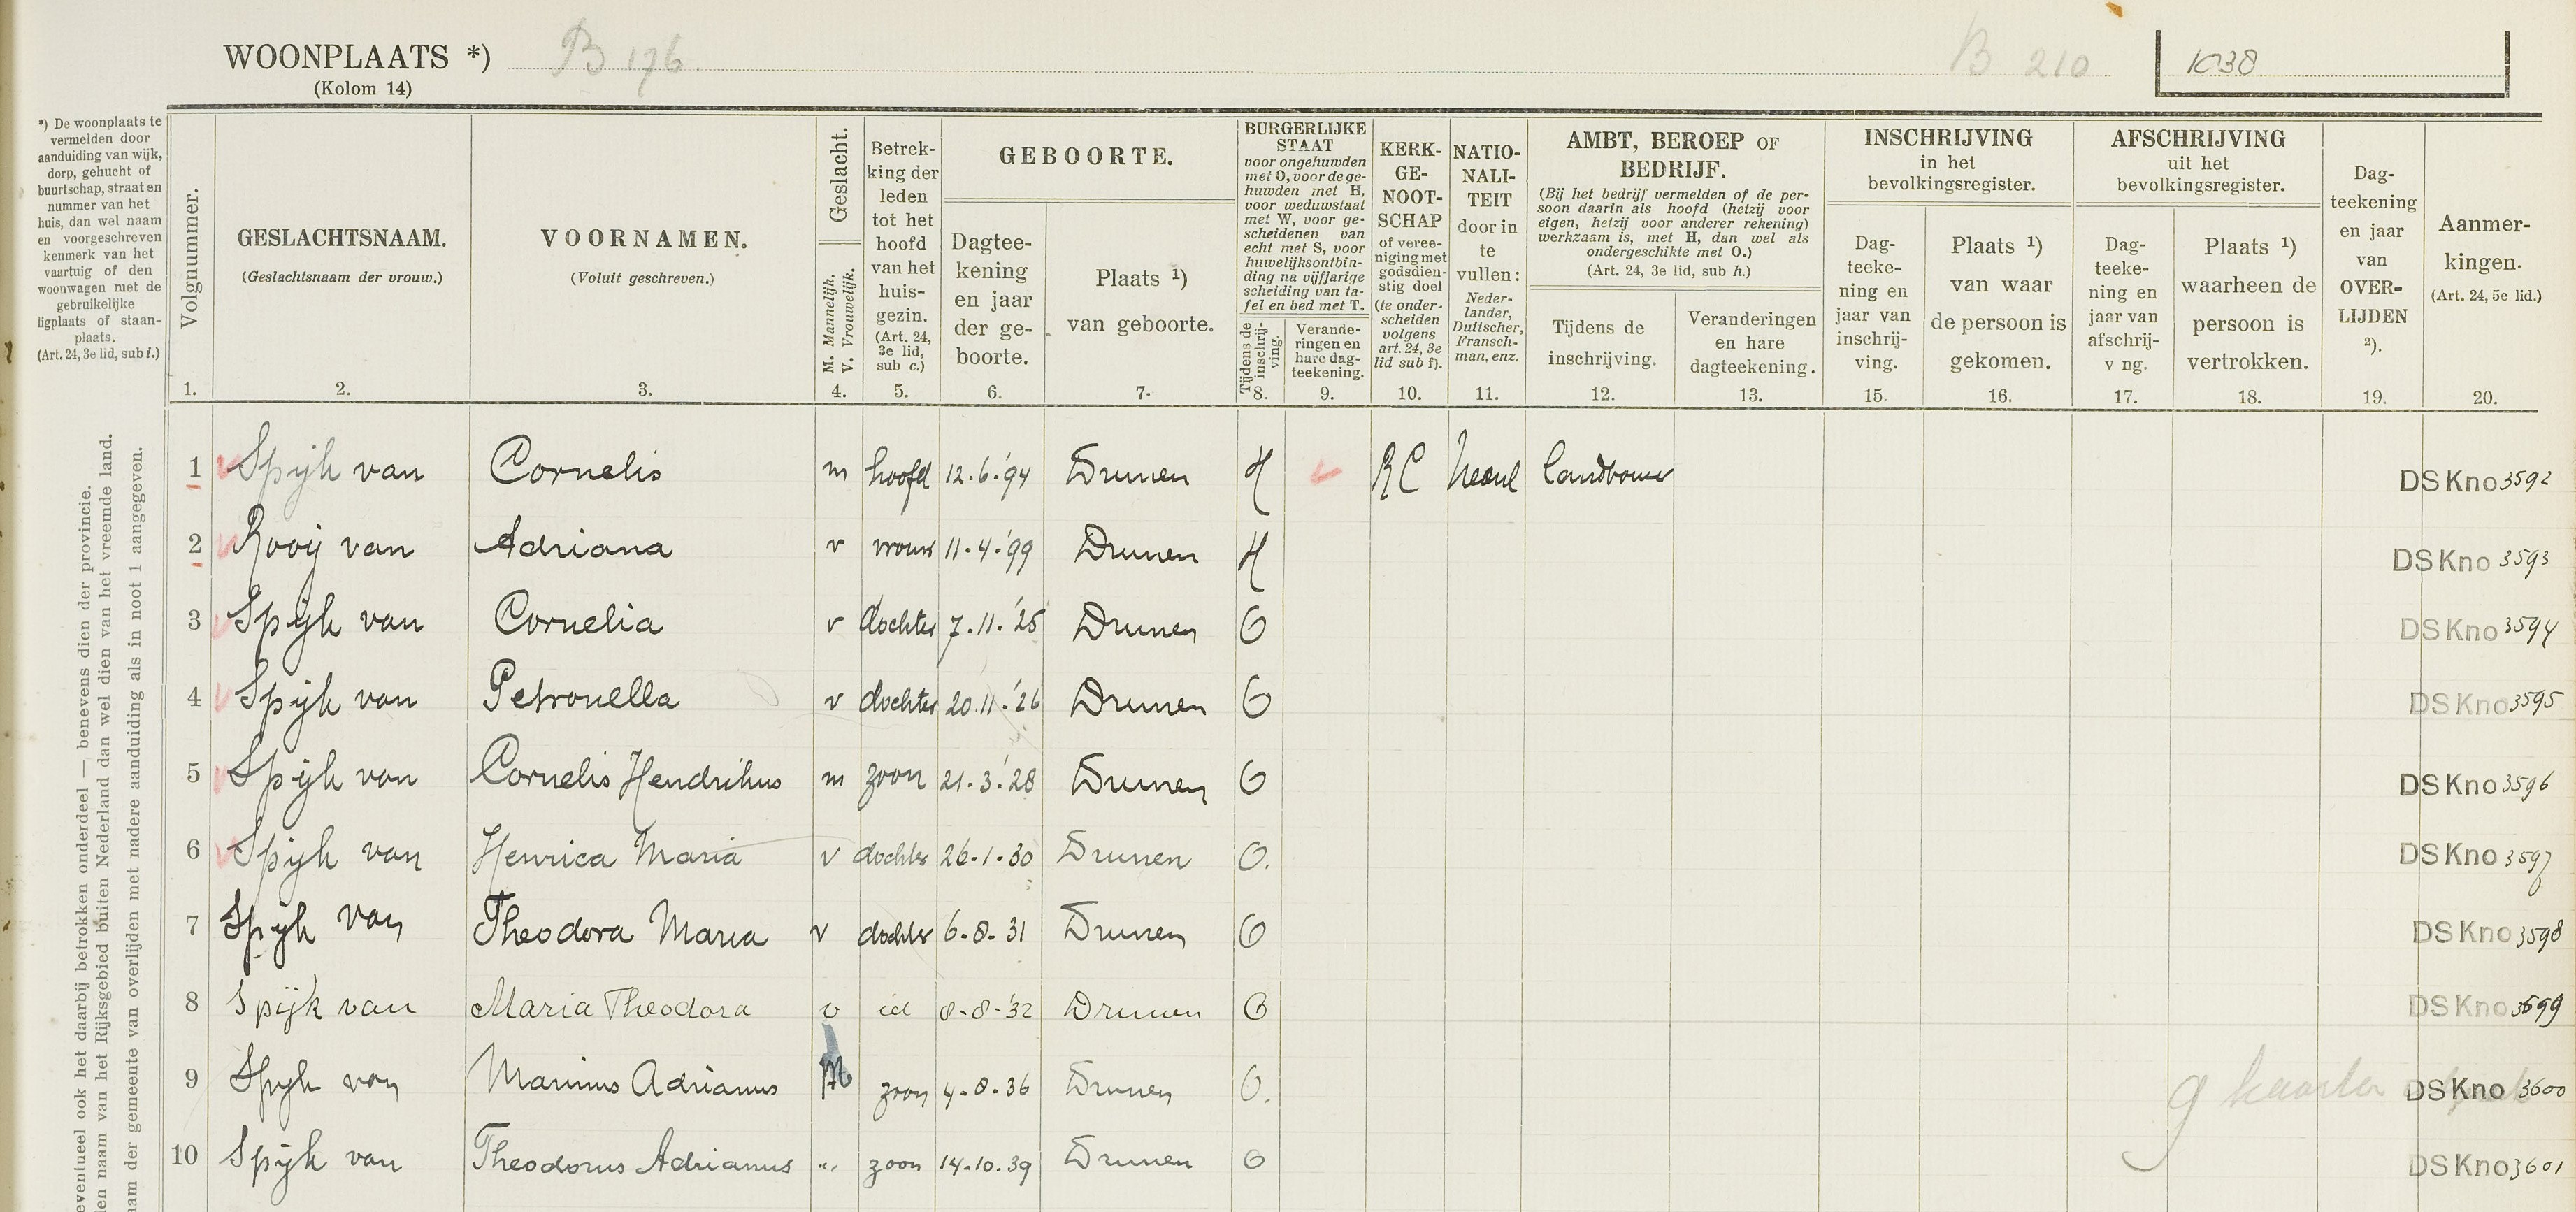 WOONPLAATS *) B 176 B 210 1038
(Kolom 14)
*) De woonplaats te
vermelden door
aanduiding van wijk,
dorp, gehucht of
buurtschap, straat en
nummer van het
huis, dan wel naam
en voorgeschreven
kenmerk van het
vaartuig of den
woonwagen met de
gebruikelijke
ligplaats of staan-
plaats.
(Art. 24, 3e lid, sub i.)
eventueel ook het daarbij betrokken onderdeel — benevens dien der provincie.
den naam van het Rijksgebied buiten Nederland dan wel dien van het vreemde land.
aam der gemeente van overlijden met nadere aanduiding als in noot 1 aangegeven.
Volgnummer.
1.
GESLACHTSNAAM.
(Geslachtsnaam der vrouw.)
2.
VOORNAMEN.
(Voluit geschreven.)
3.
Geslacht.
M. Mannelijk.
V. Vrouwelijk.
4.
Betrek-
king der
leden
tot het
hoofd
van het
huis-
gezin.
(Art. 24,
3e lid,
sub c.)
5.
GEBOORTE.
Dagtee-
kening
en jaar
der ge-
boorte.
6.
Plaats ¹)
van geboorte.
7.
BURGERLIJKE
STAAT
voor ongehuwden
met O, voor de ge-
huwden met H,
voor weduwstaat
met W, voor ge-
scheidenen van
echt met S, voor
huwelijksontbin-
ding na vijfjarige
scheiding van ta-
fel en bed met T.
Tijdens de
inschrij-
ving.
8.
Verande-
ringen en
hare dag-
teekening.
9.
KERK-
GE-
NOOT-
SCHAP
of veree-
niging met
godsdien-
stig doel
(te onder-
scheiden
volgens
art. 24, 3e
lid sub f).
10.
NATIO-
NALI-
TEIT
door in
te
vullen:
Neder-
lander,
Duitscher,
Fransch-
man, enz.
11.
AMBT, BEROEP OF
BEDRIJF.
(Bij het bedrijf vermelden of de per-
soon daarin als hoofd (hetzij voor
eigen, hetzij voor anderer rekening)
werkzaam is, met H, dan wel als
ondergeschikte met O.)
(Art. 24, 3e lid, sub h.)
Tijdens de
inschrijving.
12.
Veranderingen
en hare
dagteekening.
13.
INSCHRIJVING
in het
bevolkingsregister.
Dag-
teeke-
ning en
jaar van
inschrij-
ving.
15.
Plaats ¹)
van waar
de persoon is
gekomen.
16.
AFSCHRIJVING
uit het
bevolkingsregister.
Dag-
teeke-
ning en
jaar van
afschrij-
v ng.
17.
Plaats ¹)
waarheen de
persoon is
vertrokken.
18.
Dag-
teekening
en jaar
van
OVER-
LIJDEN
²).
19.
Aanmer-
kingen.
(Art. 24, 5e lid.)
20.
1 Spijk van Cornelis m hoofd 12.6.'94 Drunen H RC Neerl landbouwer DSKno 3592
2 Rooij van Adriana v vrouw 11.4.'99 Drunen H DSKno 3593
3 Spijk van Cornelia v dochter 7.11.'25 Drunen O DSKno 3594
4 Spijk van Petronella v dochter 20.11.'26 Drunen O DSKno 3595
5 Spijk van Cornelis Hendrikus m zoon 21.3.'28 Drunen O DSKno 3596
6 Spijk van Henrica Maria v dochter 26.1.30 Drunen O. DSKno 3597
7 Spijk van Theodora Maria v dochter 6.8.31 Drunen O DSKno 3598
8 Spijk van Maria Theodora v id 8-8-'32 Drunen O DSKno 3599
9 Spijk van Marinus Adrianus M zoon 4.8.36 Drunen O. 9 kaarten DSKno 3600
10 Spijk van Theodorus Adrianus " zoon 14.10.39 Drunen O DSKno 3601